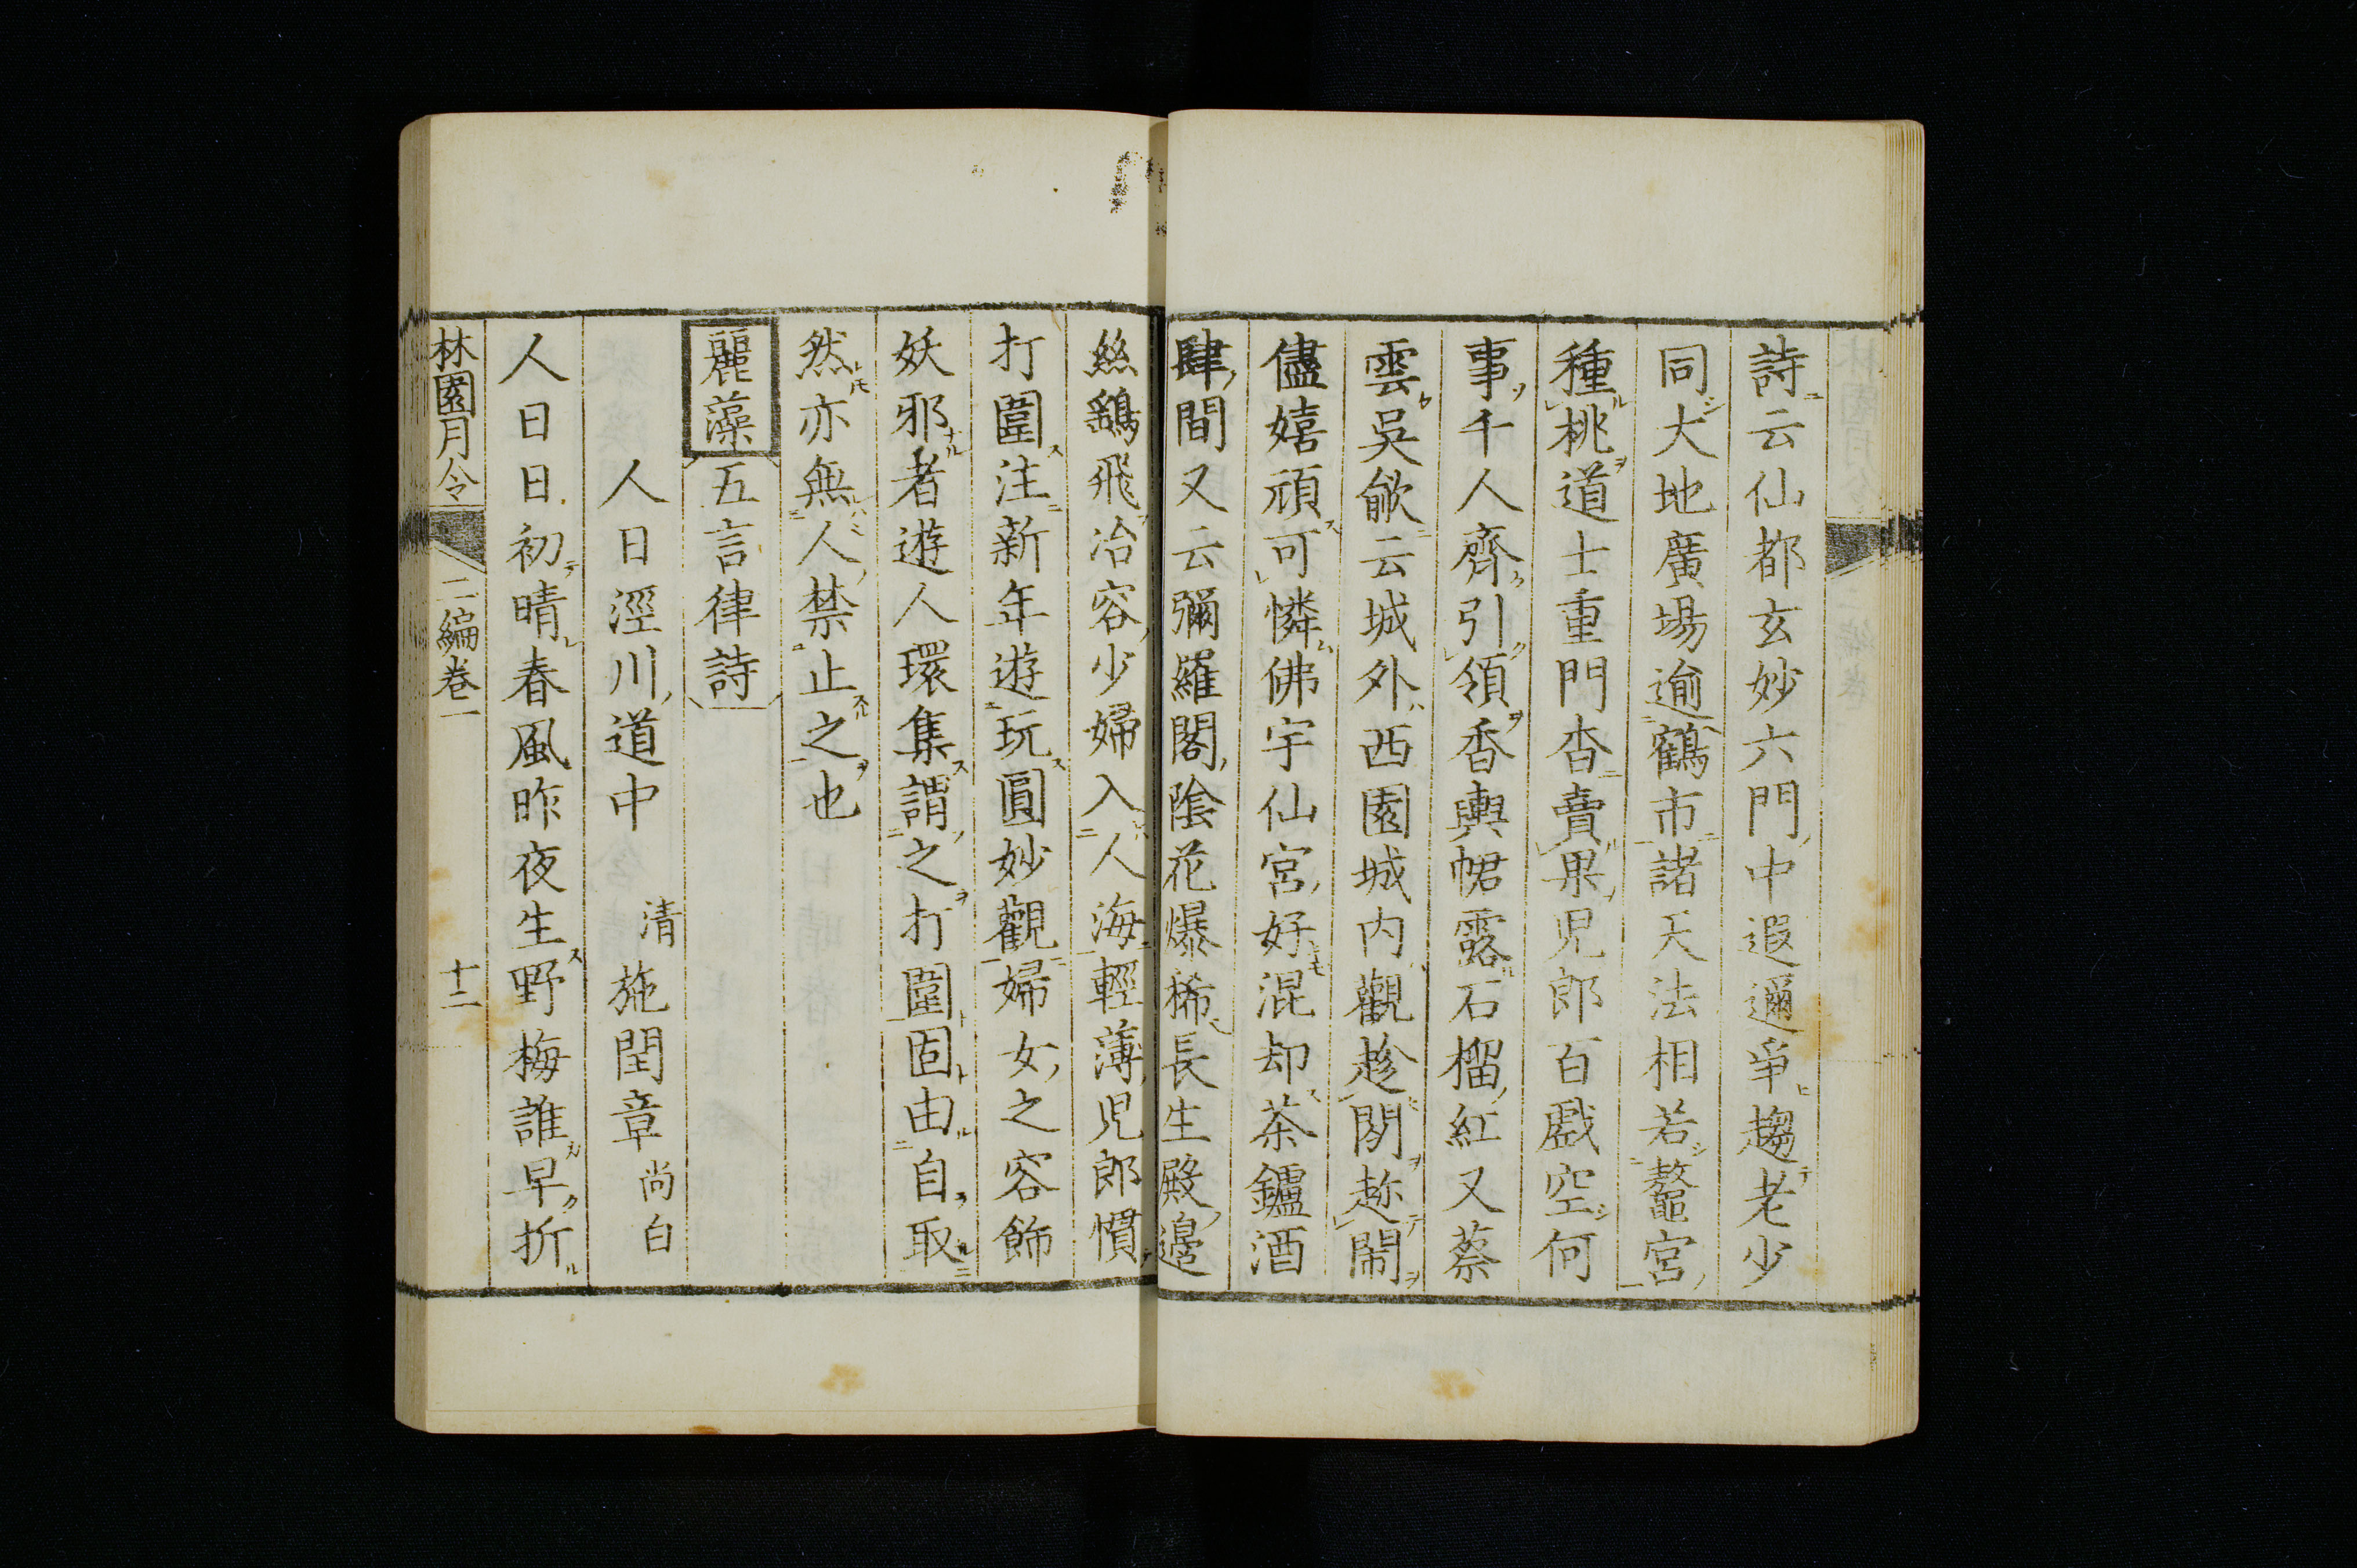 詩云仙都玄妙六門中遐邇爭趨老少
同大地廣場逾鶴市諸天法相若鼇宮
種桃道士重門杳賣果児郎百戲空何
事千人齊引領香輿帬露石榴紅又蔡
雲吳歈云城外西園城内觀趁閒趂閙
儘嬉頑可憐佛宇仙宮好混却茶鑪酒
肆間又云彌羅閣陰花爆稀長生殿邊
絲鷂飛冶容少婦入人海輕薄児郎慣
打圍注新年遊玩圓妙觀婦女之容飾
妖邪者遊人環集謂之打圍固由自取
然亦無人禁止之也
麗藻 五言律詩
人日涇川道中 清 施閏章 尚白
人日日初晴春風昨夜生野梅誰早折
林園月令 二編卷一 十二